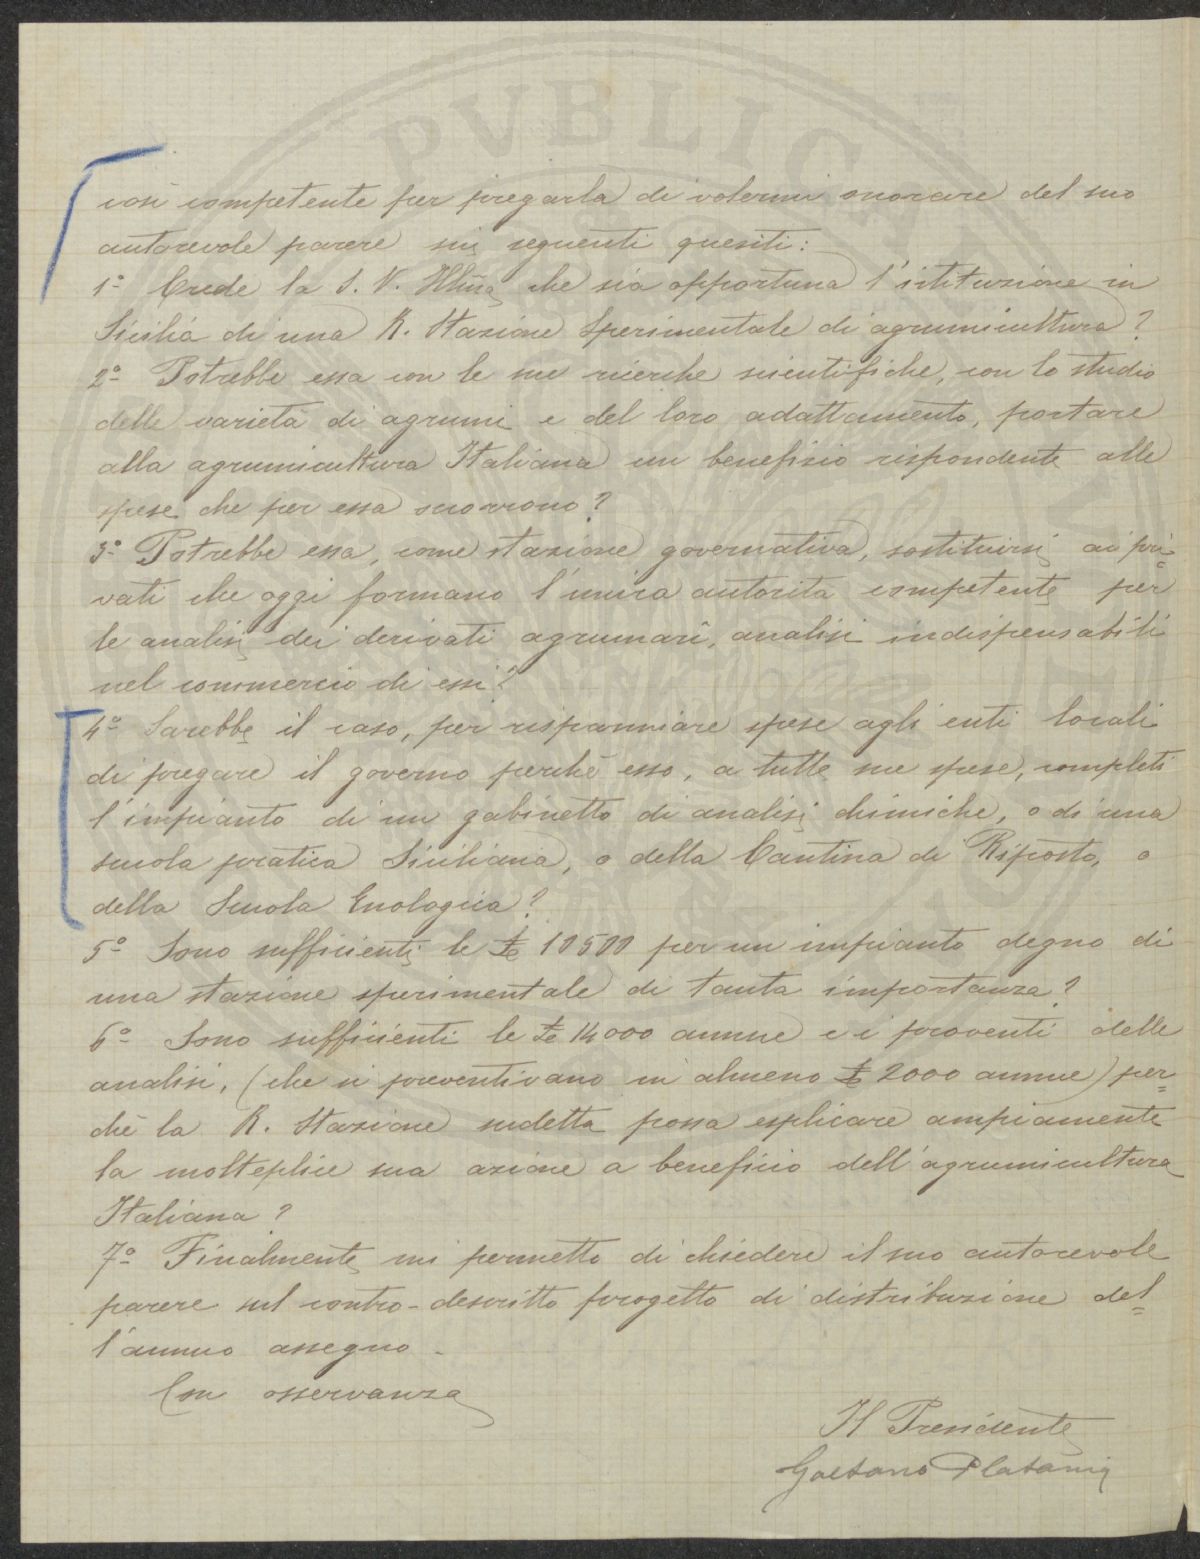 PVBLIC
così competente per pregarla di volermi onorare del suo
autorevole parere sui seguenti quesiti:
1º Crede la S. V. Illma che sia opportuna l'istituzione in
Sicilia di una R. Stazione Sperimentale di agrumicultura?
2º Potrebbe essa con le sue ricerche scientifiche, con lo studio
delle varietà di agrumi e del loro adattamento, portare
alla agrumicultura Italiana un beneficio rispondente alle
spese che per essa occorrono?
3º Potrebbe essa, come stazione governativa, sostituirsi ai pri=
vati che oggi formano l'unica autorità competente per
le analisi dei derivati agrumarî, analisi indispensabili
nel commercio di essi?
4º Sarebbe il caso, per risparmiare spese agli enti locali
di pregare il governo perchè esso, a tutte sue spese, completi
l'impianto di un gabinetto di analisi chimiche, o di una
scuola pratica Siciliana, o della Cantina di Riposto, o
della Scuola Enologica?
5º Sono sufficienti le £ 10500 per un impianto degno di
una stazione sperimentale di tanta importanza?
6º Sono sufficienti le £ 14000 annue e i proventi delle
analisi, (che si preventivano in almeno £ 2000 annue) per=
chè la R. Stazione sudetta possa esplicare ampiamente
la molteplice sua azione a beneficio dell'agrumicultura
Italiana?
7º Finalmente mi permetto di chiedere il suo autorevole
parere sul contro-descritto progetto di distribuzione del=
l'annuo assegno.
Con osservanza
Il Presidente
Gaetano Platania